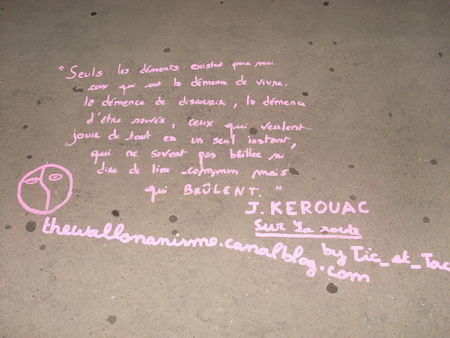 "Seuls les déments existent pour moi
ceux qui ont la démence de vivre,
la démence de discourir, la démence
d'être sauvés, ceux qui veulent
jouir de tout en un seul instant,
qui ne savent pas bailler ni
dire de lieu commun mais
qui BRÛLENT."
J. KEROUAC
Sur la route
thewallonanisme.canalblog.com
by Tic_et_Tac